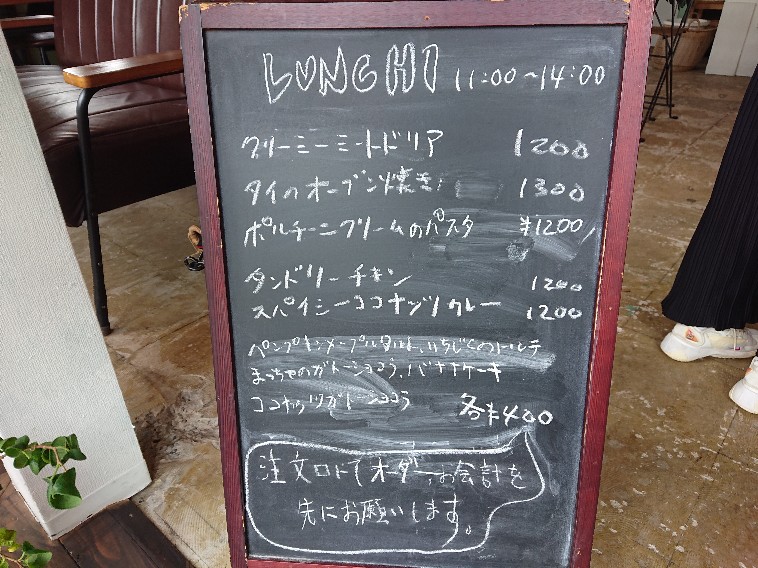 LUNCH! 11:00~14:00
クリーミーミートドリア 1200
タイのオーブン焼き 1300
ポルチーニクリームのパスタ ¥1200
タンドリーチキン 1200
スパイシーココナッツカレー 1200
ペンプキンメープルタルト、いちじくのトルテ
まっちゃのガトーショコラ、バナナケーキ
ココナッツガトーショコラ 各¥400
注文口トでオーダー、お会計を
先にお願いします。